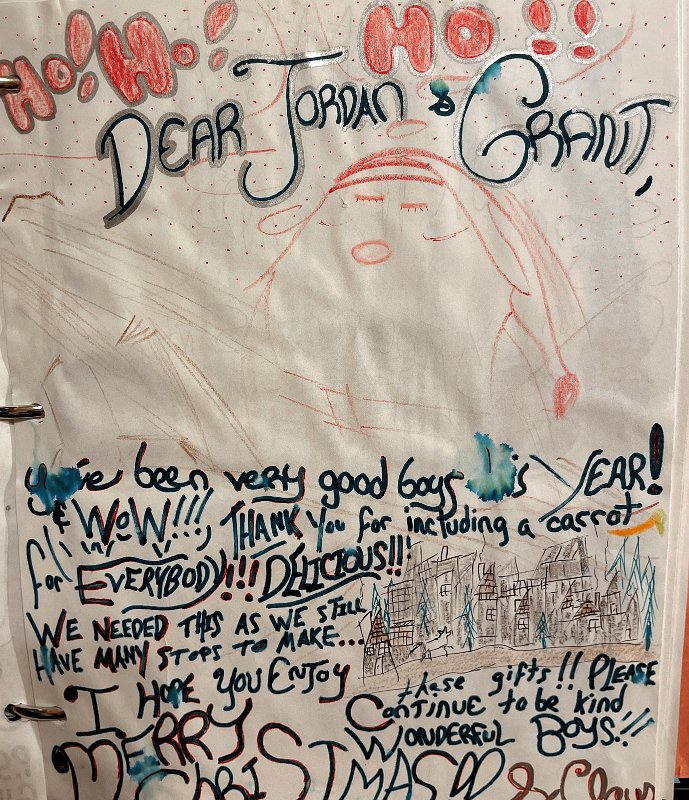 Ho! Ho! HO!!
DEAR JORDAN & GRANT,
You've been very good boys this YEAR!
& WOW!!! THANK You for including a carrot
for EVERYBODY!!! DELICIOUS!!!
WE NEEDED THIS AS WE STILL
HAVE MANY STOPS TO MAKE...
I HOPE YOU ENJOY these gifts!! PLEASE
CONTINUE to be kind
WONDERFUL BOYS!!
MERRY CHRISTMAS
S. Claus